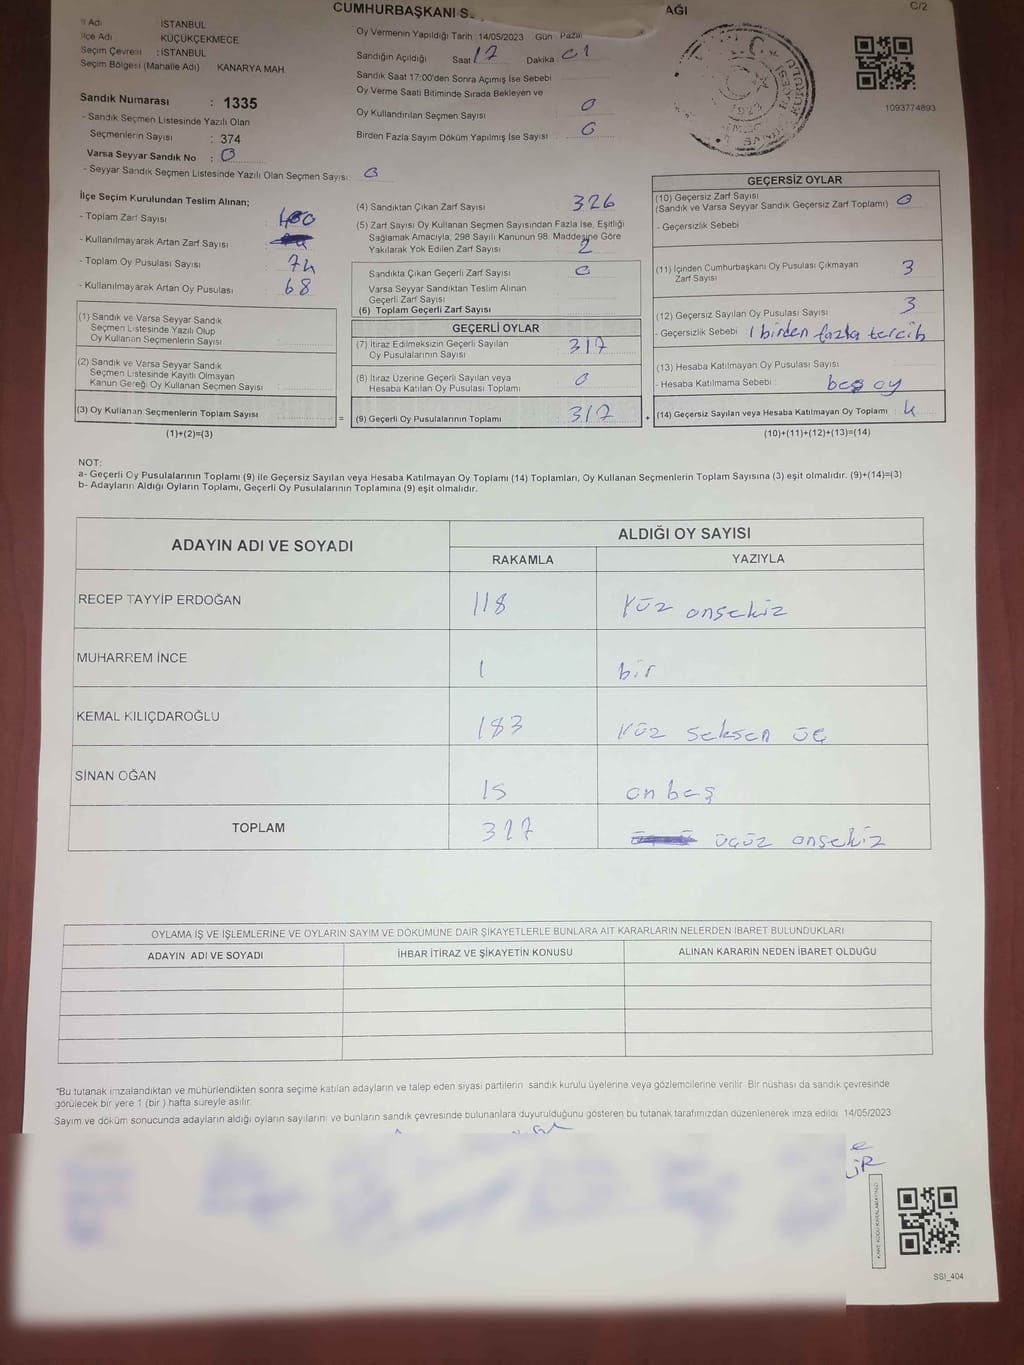 CUMHURBAŞKANI S
AĞI
C/2
İli Adı : İSTANBUL
İlçe Adı KÜÇÜKÇEKMECE
Seçim Çevresi : İSTANBUL
Seçim Bölgesi (Mahalle Adı) KANARYA MAH.
Sandık Numarası : 1335
- Sandık Seçmen Listesinde Yazılı Olan
Seçmenlerin Sayısı : 374
Varsa Seyyar Sandık No : 0
- Seyyar Sandık Seçmen Listesinde Yazılı Olan Seçmen Sayısı: 0
Oy Vermenin Yapıldığı Tarih :14/05/2023 Gün : Pazar
Sandığın Açıldığı Saat 17 Dakika 01
Sandık Saat 17:00'den Sonra Açımış İse Sebebi
Oy Verme Saati Bitiminde Sırada Bekleyen ve
Oy Kullandırılan Seçmen Sayısı : 0
Birden Fazla Sayım Döküm Yapılmış İse Sayısı : 0
1923
1093774893
İlçe Seçim Kurulundan Teslim Alınan;
- Toplam Zarf Sayısı : 400
- Kullanılmayarak Artan Zarf Sayısı :
- Toplam Oy Pusulası Sayısı : 74
- Kullanılmayarak Artan Oy Pusulası : 68
(1) Sandık ve Varsa Seyyar Sandık
Seçmen Listesinde Yazılı Olup
Oy Kullanan Seçmenlerin Sayısı
(2) Sandık ve Varsa Seyyar Sandık
Seçmen Listesinde Kayıtlı Olmayan
Kanun Gereği Oy Kullanan Seçmen Sayısı
(3) Oy Kullanan Seçmenlerin Toplam Sayısı
(1)+(2)=(3)
=
(4) Sandıktan Çıkan Zarf Sayısı : 326
(5) Zarf Sayısı Oy Kullanan Seçmen Sayısından Fazla İse, Eşitliği
Sağlamak Amacıyla, 298 Sayılı Kanunun 98. Maddesine Göre
Yakılarak Yok Edilen Zarf Sayısı : 2
Sandıkta Çıkan Geçerli Zarf Sayısı : 0
Varsa Seyyar Sandıktan Teslim Alınan
Geçerli Zarf Sayısı
(6) Toplam Geçerli Zarf Sayısı
GEÇERLİ OYLAR
(7) İtiraz Edilmeksizin Geçerli Sayılan
Oy Pusulalarının Sayısı : 317
(8) İtiraz Üzerine Geçerli Sayılan veya
Hesaba Katılan Oy Pusulası Toplamı : 0
(9) Geçerli Oy Pusulalarının Toplamı : 317
+
GEÇERSİZ OYLAR
(10) Geçersiz Zarf Sayısı
(Sandık ve Varsa Seyyar Sandık Geçersiz Zarf Toplamı) : 0
- Geçersizlik Sebebi
(11) İçinden Cumhurbaşkanı Oy Pusulası Çıkmayan
Zarf Sayısı : 3
(12) Geçersiz Sayılan Oy Pusulası Sayısı : 3
- Geçersizlik Sebebi : 1 birden fazla tercih
(13) Hesaba Katılmayan Oy Pusulası Sayısı :
- Hesaba Katılmama Sebebi : boş oy
(14) Geçersiz Sayılan veya Hesaba Katılmayan Oy Toplamı : 4
(10)+(11)+(12)+(13)=(14)
NOT:
a- Geçerli Oy Pusulalarının Toplamı (9) ile Geçersiz Sayılan veya Hesaba Katılmayan Oy Toplamı (14) Toplamları, Oy Kullanan Seçmenlerin Toplam Sayısına (3) eşit olmalıdır. (9)+(14)=(3)
b- Adayların Aldığı Oyların Toplamı, Geçerli Oy Pusulalarının Toplamına (9) eşit olmalıdır.
ADAYIN ADI VE SOYADI
ALDIĞI OY SAYISI
RAKAMLA YAZIYLA
RECEP TAYYİP ERDOĞAN 118 Yüz onsekiz
MUHARREM İNCE 1 bir
KEMAL KILIÇDAROĞLU 183 Yüz seksen üç
SİNAN OĞAN 15 on beş
TOPLAM 317 üçüz onsekiz
OYLAMA İŞ VE İŞLEMLERİNE VE OYLARIN SAYIM VE DÖKÜMÜNE DAİR ŞİKAYETLERLE BUNLARA AİT KARARLARIN NELERDEN İBARET BULUNDUKLARI
ADAYIN ADI VE SOYADI İHBAR İTİRAZ VE ŞİKAYETİN KONUSU ALINAN KARARIN NEDEN İBARET OLDUĞU
*Bu tutanak imzalandıktan ve mühürlendikten sonra seçime katılan adayların ve talep eden siyasi partilerin sandık kurulu üyelerine veya gözlemcilerine verilir. Bir nüshası da sandık çevresinde
görülecek bir yere 1 (bir) hafta süreyle asılır.
Sayım ve döküm sonucunda adayların aldığı oyların sayılarını ve bunların sandık çevresinde bulunanlara duyurulduğunu gösteren bu tutanak tarafımızdan düzenlenerek imza edildi. 14/05/2023
KARE KODU KARALAMAYINIZ
SSI_404